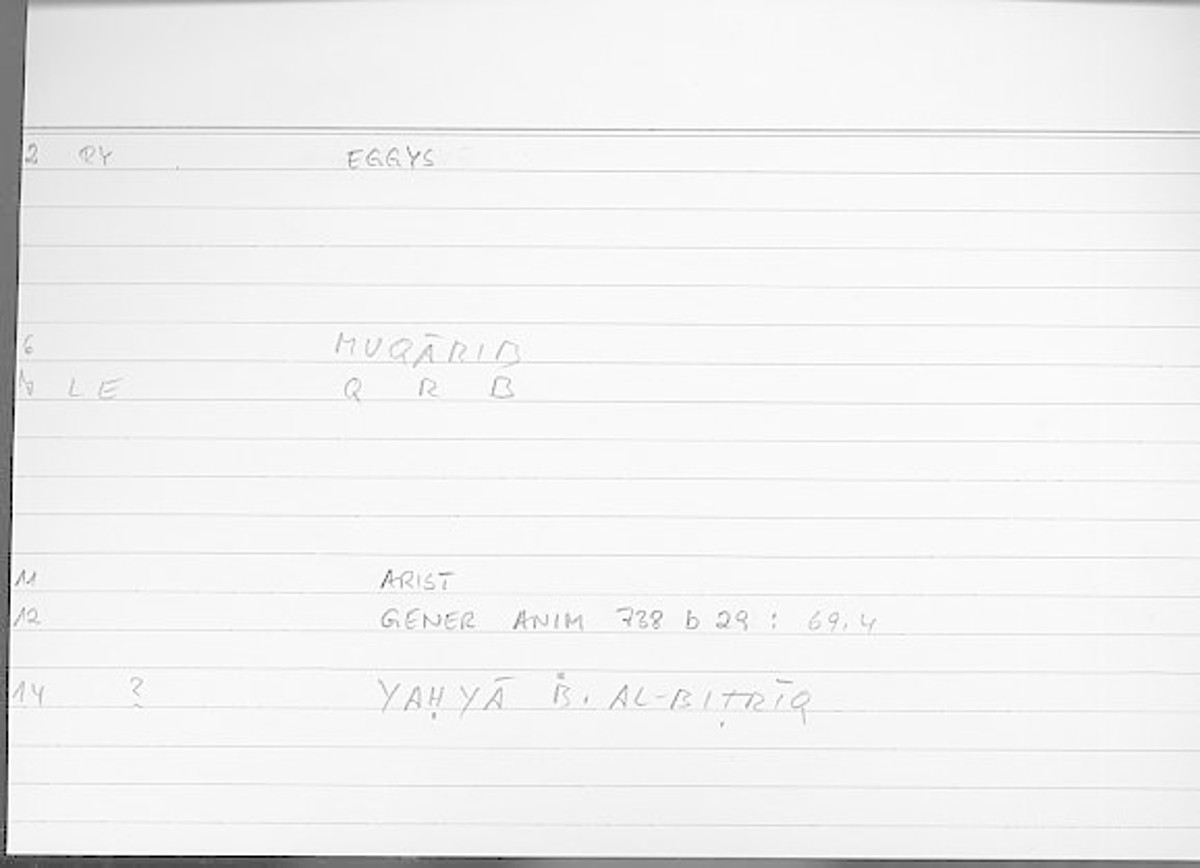 2 RY EGGYS
6 MUQĀRIB
LE Q R B
11 ARIST
12 GENER ANIM 738 b 29 : 69.4
14 ? YAḤYĀ B. AL-BIṬRĪQ